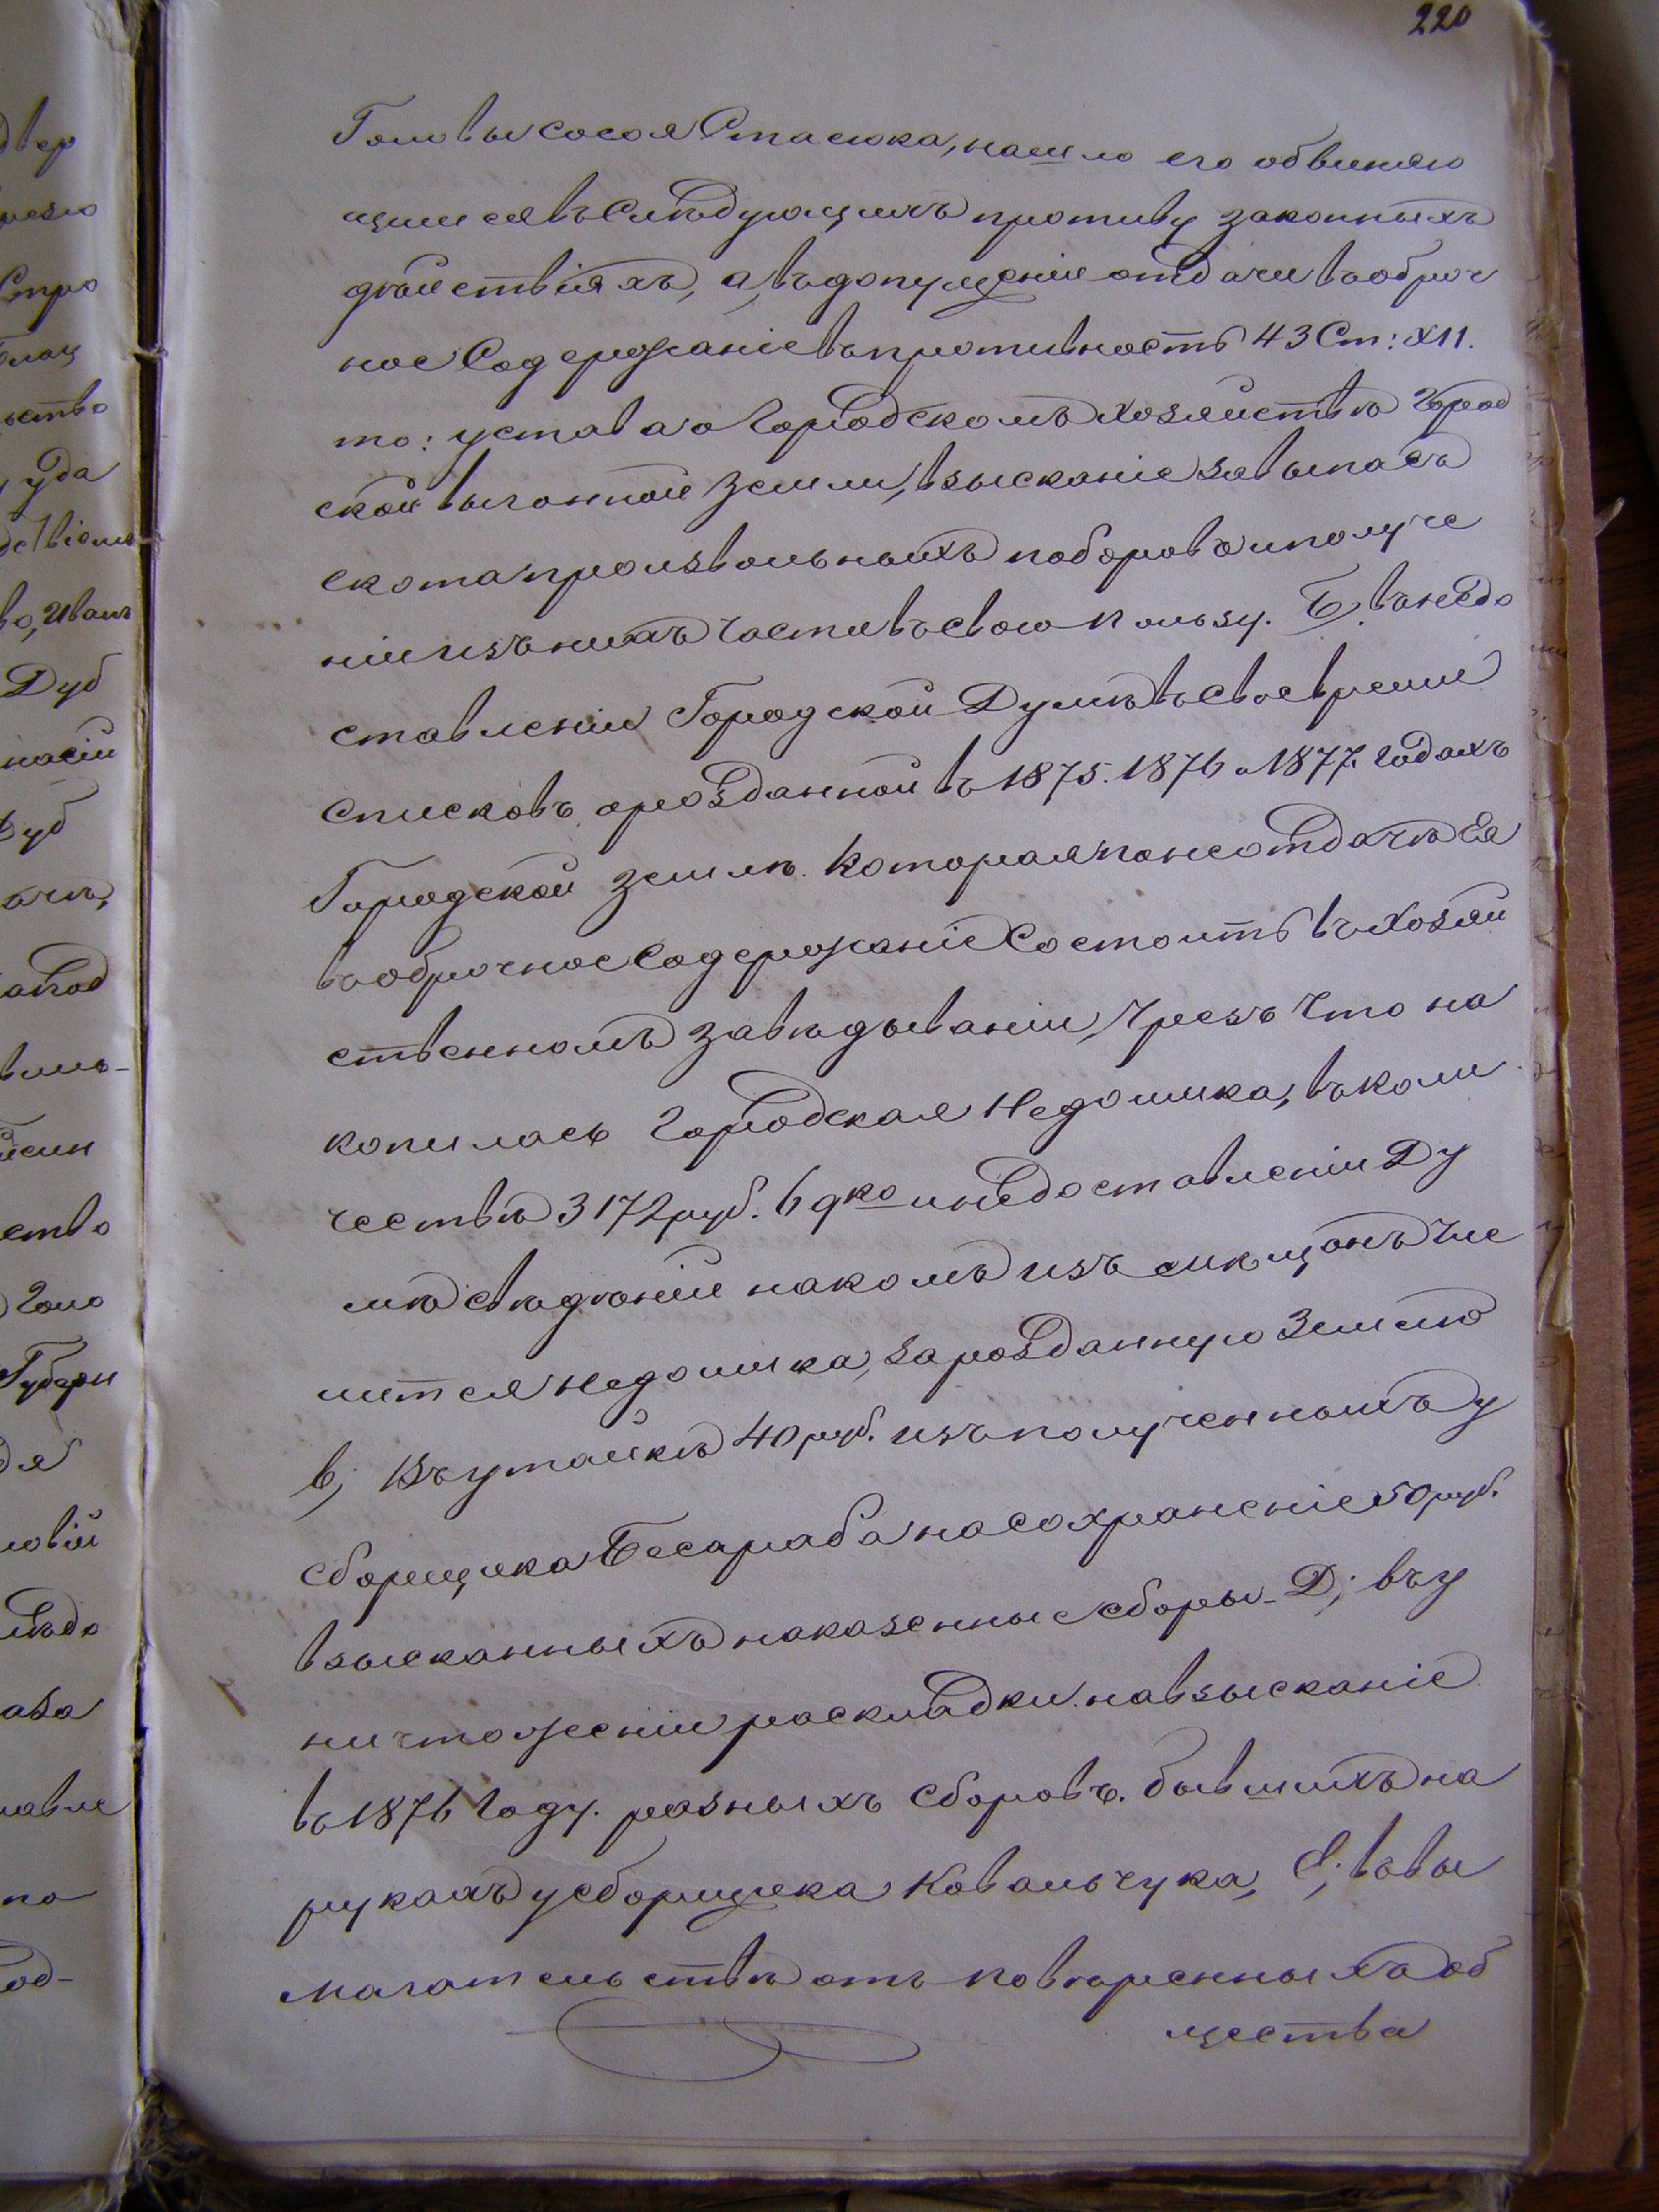 220
Головы Сосоя Стасюка, нашло его обвиняю
щимся въ Слѣдующихъ противу законныхъ
дѣйствіяхъ, а, въ допущеніи отдачи въ оброч
ное Содержаніе въ противность 43 Ст: XII.
то: устава о Городскомъ хозяйствѣ Город
ской выгонной земли, взысканіе за выпасъ
скота произвольныхъ поборовъ и получе
ніи изъ нихъ части въ свою пользу. Б, въ недо
ставленіи Городской Думѣ въ свое время
списковъ о розданной въ 1875. 1876 и 1877 годахъ
Городской землѣ. Которая по неотдачѣ Ея
въ оброчное Содержаніе Состоитъ въ хозяй
ственномъ завѣдываніи, чрезъ что на
копилась Городская Недоимка, въ коли
чествѣ 3172 руб. 69 ко и недоставленіи Ду
мѣ свѣдѣнія на комъ изъ мѣщанъ чис
лится недоимка, за розданную землю
в; Въ утайкѣ 40 руб. изъ полученныхъ у
сборщика Бесараба на сохраненіе 50 руб.
взысканныхъ на казенные сборы_ Д; въ у
ничтоженіи раскладки на взысканіе
въ 1876 году. разныхъ сборовъ. бывшихъ на
рукахъ у сборщика Ковальчука, Е; въ вы
могательствѣ отъ повѣренныхъ об
щества